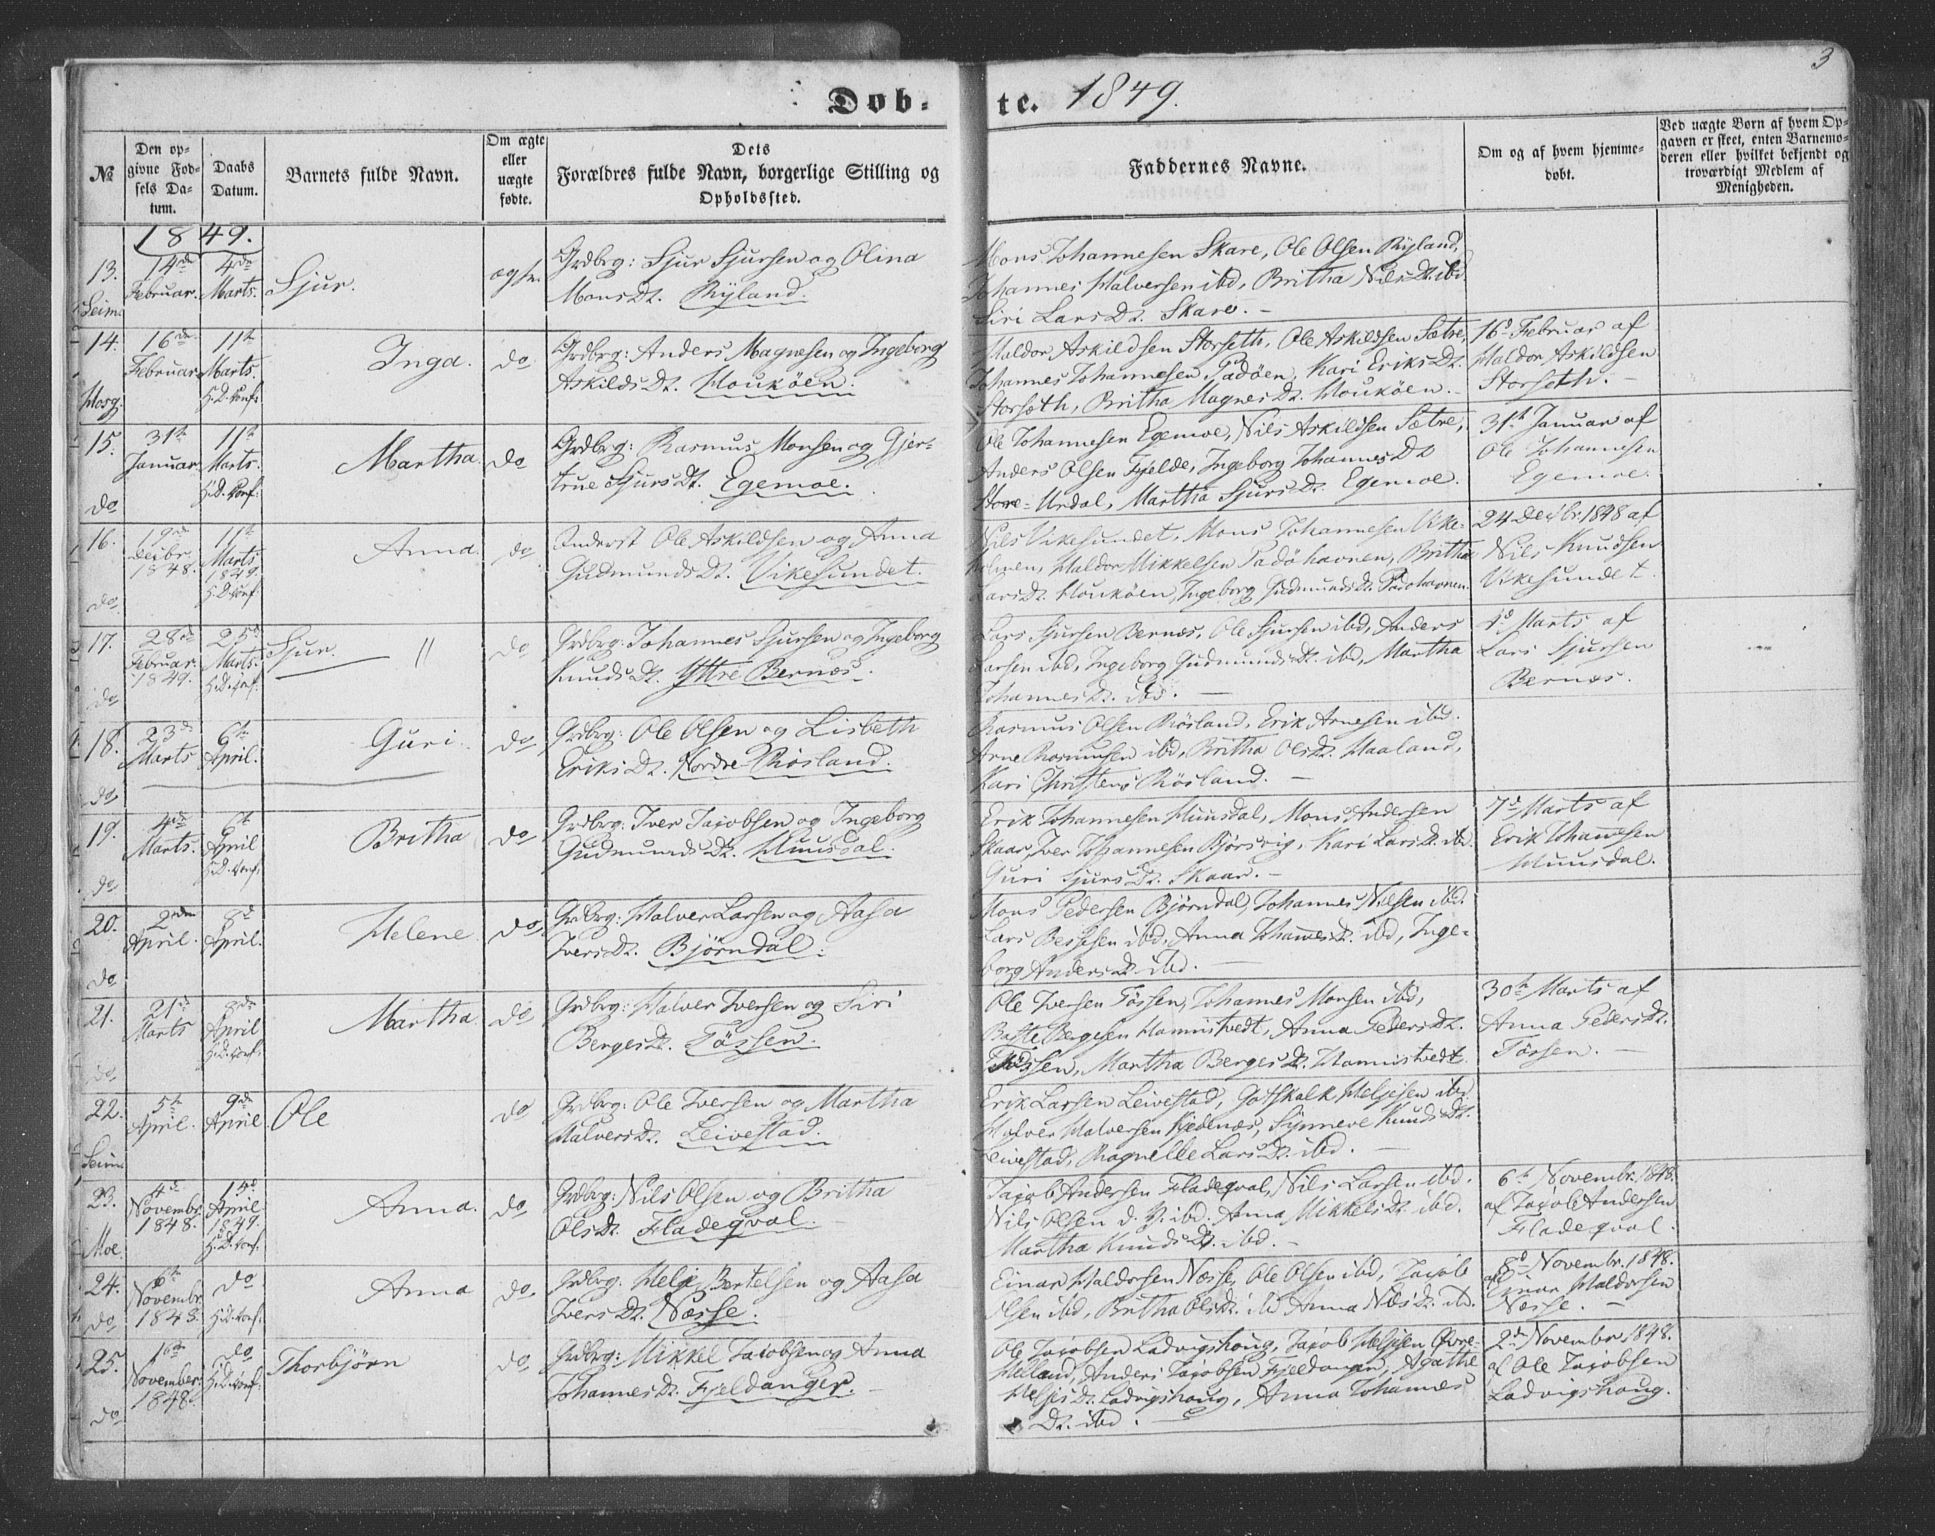 3
Døb- te. 1849.
№
Den opgivne Fødsels Datum.
Daabs Datum.
Barnets fulde Navn.
Om ægte eller uægte fødte.
Dets Forældres fulde Navn, borgerlige Stilling og Opholdssted.
Faddernes Navne.
Om og af hvem hjemmedøbt.
Ved uægte Børn af hvem Opgaven er skeet, enten Barnemoderen eller hvilket bekjendt og troværdigt Medlem af Menigheden.
1849.
13. Seim
14de Februar.
4de Marts.
Sjur.
Grdbrg: Sjur Sjursen og Olina
Mons Dt. Ryland.
Mons Johannesen Skare, Ole Olsen Ryland,
Johannes Halversen ibd, Britha Nils Dt. ibd
Siri Lars Dt. Skare. –
14. Hosg.
16de Februar
11te Marts. H.D. Conf.
Inga.
do
Grdbrg: Anders Magnesen og Ingeborg
Askilds Dt. Houköen.
Haldor Askildsen Storseth, Ole Askildsen Sætre,
Johannes Johannesen Padöen, Kari Eriks Dt.
Storseth, Britha Magnes Dt. Houköen. –
16d Februar af
Haldor Askildsen
Storseth. –
15. do
31te Januar.
11te Marts. H.D. Conf.
Martha.
do
Grdbrg: Rasmus Monsen og Gjer-
true Sjurs Dt. Egemoe.
Ole Johannesen Egemoe, Nils Askildsen Sætre,
Anders Olsen Fjelde, Ingeborg Johannes Dt
Store-Urdal, Martha Sjurs Dt. Egemoe.
31te Januar af
Ole Johannesen
Egemoe.
16. do
19de Decbr. 1848.
11te Marts 1849. H.D. Conf.
Anna.
do
Inderst Ole Askildsen og Anna
Gudmunds Dt. Vikesundet.
Nils Vikesundet, Mons Johannesen Vike-
holmen, Haldor Mikkelsen Padöhavnen, Britha
Lars Dt. Houköen, Ingeborg Gudmunds Dt. Padöhavnen.
24 Decbr. 1848 af
Nils Knudsen
Vikesundet.
17. do
28de Februar. 1849.
25d Marts.
Sjur. "
do
Grdbrg: Johannes Sjursen og Ingeborg
Knuds Dt. Yttre Bernæs.
Lars Sjursen Bernæs, Ole Sjursen ibd, Anders
Larsen ibd, Ingeborg Gudmunds Dt. ibd, Martha
Johannes Dt. ibd. –
1d Marts af
Lars Sjursen
Bernæs.
18. do
23de Marts
6te April.
Guri.
do
Grdbrg: Ole Olsen og Lisbeth
Eriks Dt. Nordre Rösland.
Rasmus Olsen Rösland, Erik Arnesen ibd.
Arne Rasmusen ibd, Britha Ols Dt. Haaland,
Kari Christens Rösland. –
19. do
4de Marts.
6te April H.D. Conf.
Britha
do
Grdbrg: Iver Jacobsen og Ingeborg
Gudmunds Dt. Huusdal.
Erik Johannesen Huusdal, Mons Andersen
Skaar, Iver Johannesen Bjørsvig, Kari Lars Dt. ibd.
Guri Sjurs Dt. Skaar. –
7d Marts af
Erik Johannesen
Huusdal.
20. do
2den April.
8d April.
Helene
do
Grdbrg: Halver Larsen og Aasa
Ivers Dt. Bjørndal.
Mons Pedersen Bjørndal, Johannes Nilsen ibd.
Lars Bessesen ibd, Anna Johannes Dt. ibd, Inge-
borg Anders Dt. ibd. –
21. do
21d Marts
8de April H.D. Conf.
Martha.
do
Grdbrg: Halver Iversen og Siri
Berges Dt. Tössen.
Ole Iversen Tössen, Johannes Monsen ibd,
Baste Bergesen Hannistvedt, Anna Peders Dt.
Tössen, Martha Berges Dt. Hannistvedt.
30te Marts af
Anna Peders Dt.
Tössen. –
22. Seim
5te April.
9de April
Ole
do
Grdbrg: Ole Iversen og Martha
Halvers Dt. Leivestad.
Erik Larsen Leivestad, Gotskalk Heljesen ibd.
Halver Halversen Kjelnæs, Synneve Knuds Dt.
Leivestad, Ragnelle Lars Dt. ibd. –
23. Moe.
4de Novembr. 1848.
1d April 1849. H.D. Conf.
Anna.
do
Grdbrg: Nils Olsen og Britha
Ols Dt. Fladeqval.
Jacob Andersen Fladeqval, Nils Larsen ibd.
Nils Olsen d. Y. ibd. Anna Mikkels Dt. ibd.
Martha Knuds Dt. ibd. –
6te Novembr. 1848.
af Jacob Andersen
Fladeqval.
24. do
6te Novembr. 1848.
do H.D. Conf.
Anna
do
Grdbrg: Helje Bertelsen og Aasa
Ivers Dt. Næsse.
Einar Haldorsen Næsse, Ole Olsen ibd, Jacob
Olsen ibd, Britha Ols Dt. ibd Anna Nils Dt. ibd.
8d Novembr. 1848.
af Einar Haldorsen
Næsse. –
25. do
1ste November. 1848.
do H.D. Conf.
Thorbjörn
do
Grdbrg: Mikkel Jacobsen og Anna
Johannes Dt. Fjeldanger. –
Ole Jacobsen Ladvigshoug, Jacob Heljesen Øvre-
Helland, Anders Jacobsen Fjeldanger, Agathe
Heljes Dt. Ladvigshoug, Anna Johannes
Dt. ibd. –
2de Novembr 1848.
af Ole Jacobsen
Ladvigshoug.